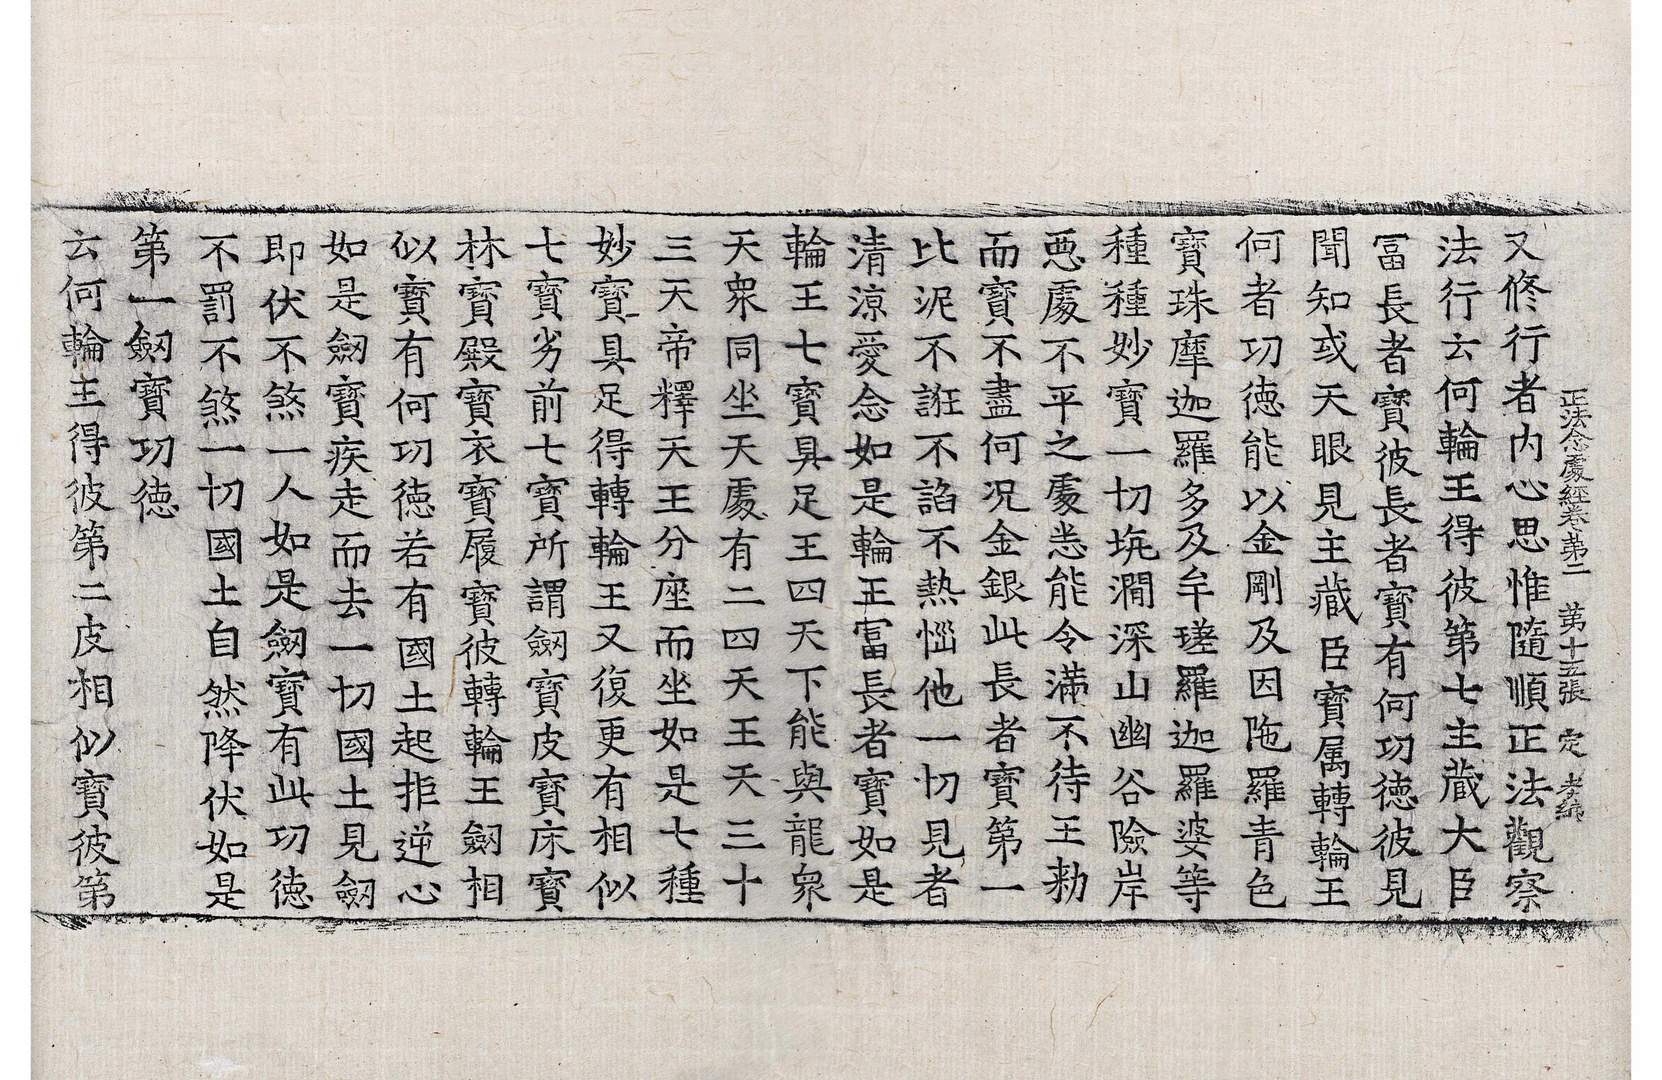 正法念處經卷第二　第十五張　定
又修行者內心思惟隨順正法觀察
法行云何輪王得彼第七主藏大臣
冨長者寶彼長者寶有何功德彼見
聞知或天眼見主藏臣寶属轉輪王
何者功德能以金剛及因陁羅青色
寶珠摩迦羅多及牟瑳羅迦羅婆等
種種妙寶一切坑澗深山幽谷險岸
惡處不平之處悉能令滿不待王勑
而寶不盡何況金銀此長者寶第一
比泥不誑不諂不熱惱他一切見者
清涼愛念如是輪王富長者寶如是
輪王七寶具足王四天下能與龍衆
天衆同坐天處有二四天王天三十
三天帝釋天王分座而坐如是七種
妙寶具足得轉輪王又復更有相似
七寶劣前七寶所謂劒寶皮寶床寶
林寶殿寶衣寶履寶彼轉輪王劒相
似寶有何功德若有國土起拒逆心
如是劒寶疾走而去一切國土見劒
即伏不煞一人如是劒寶有此功德
不罰不煞一切國土自然降伏如是
第一劒寶功德
云何輪王得彼第二皮相似寶彼第